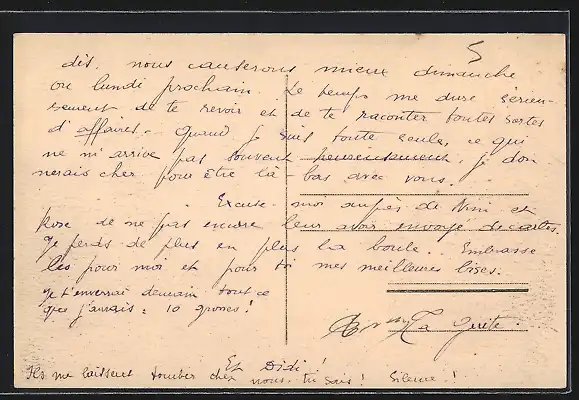 5
dis, nous causerons mieux dimanche
ou lundi prochain. Le temps me dure sérieu-
sement de te revoir et de te raconter toutes sortes
d'affaires. Quand je suis toute seule, ce qui
ne m'arrive pas souvent heureusement, je don
nerais cher pour être là-bas avec vous.
Excuse-moi auprès de Nini et
Rose de ne pas encore leur avoir envoyé de cartes.
Je perds de plus en plus la boule. Embrasse
les pour moi et pour toi mes meilleures bises.
Je t'enverrai demain tout ce
que j'aurais = 10 grosses!
La Guite.
Et Didi!
Ils me laissent tomber chez nous, tu sais! Silence!